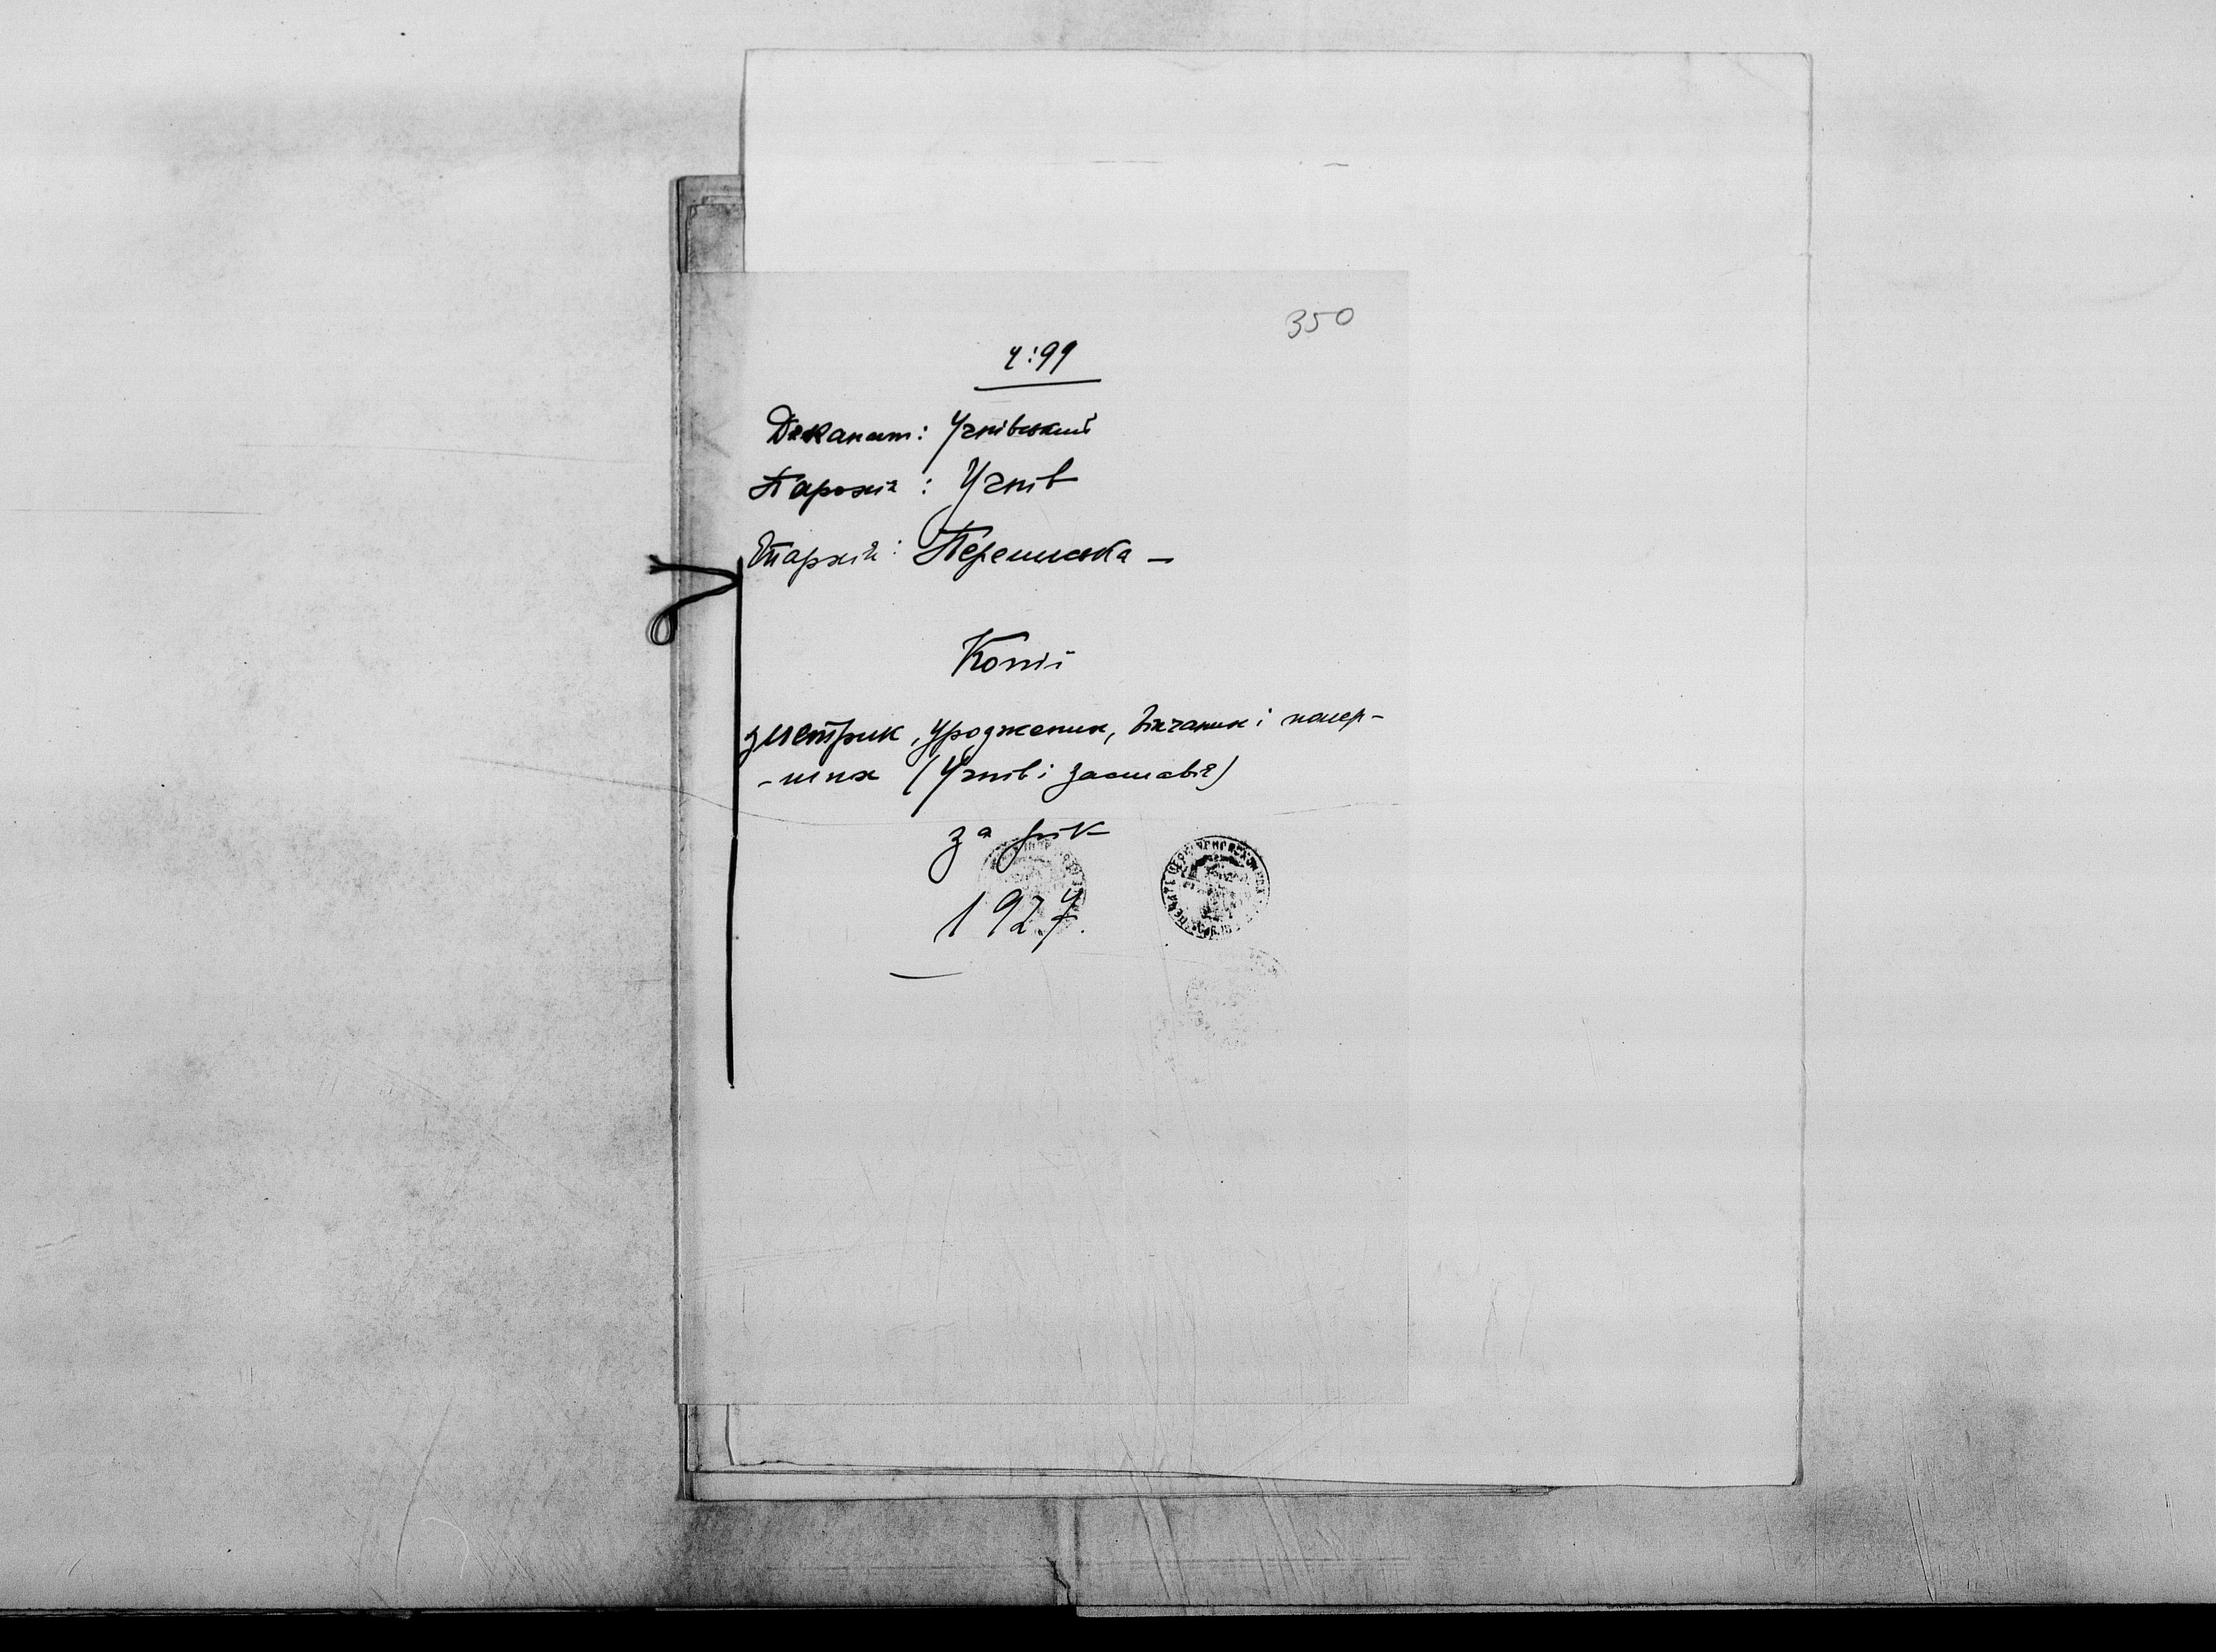 350
ч: 99
Деканат: Угнівський
Парохія: Угнів
Епархія: Перемиська —
Копії
з метрик, уроджених, вінчаних і помер-
-ших (Угнів і Заставє)
за рік
1927.